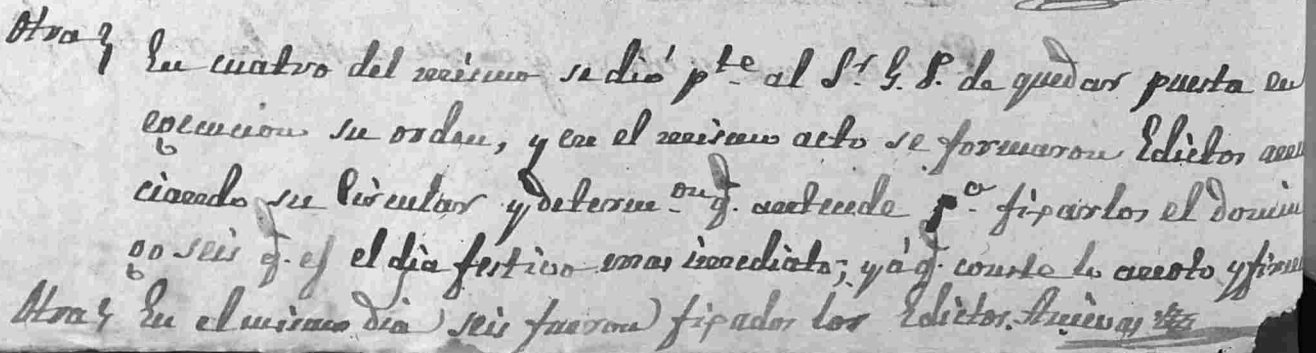 Otra} En cuatro del mismo se dió pte. al Sr. G. P. de quedar puesta en
egecucion su orden, y en el mismo acto se formaron Edictos anun
ciando su Circular y determon. q. antecede pa. fijarlos el domin
go seis q. es el dia festivo mas inmediato; y á q. conste lo anoto y firmo
Otra} En el mismo dia seis fueron fijados los Edictos.